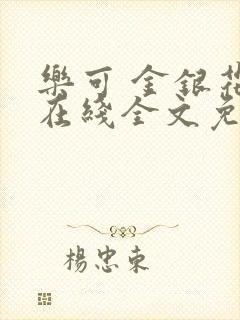 樂可 金銀花
在綫全文免
楊忠東